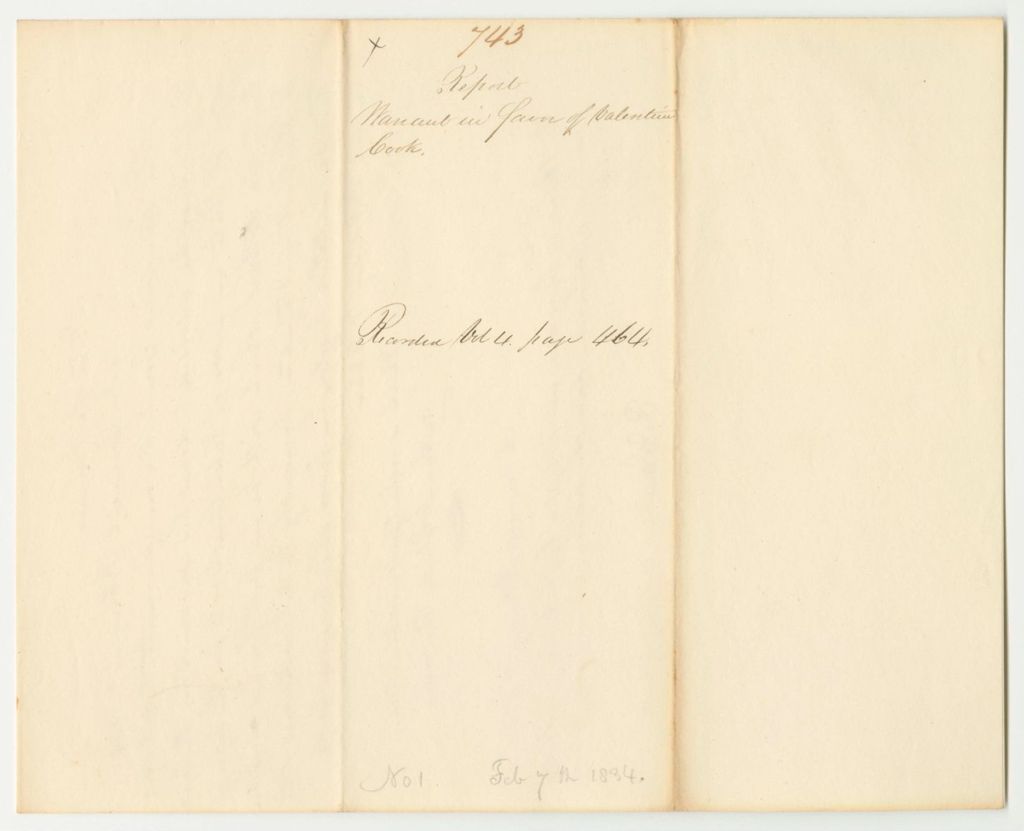 x 743
Report
Warrant in favor of Valentine
Cook.
Recorded Vol 4. page 464.
No 1. Feb 7th 1834.